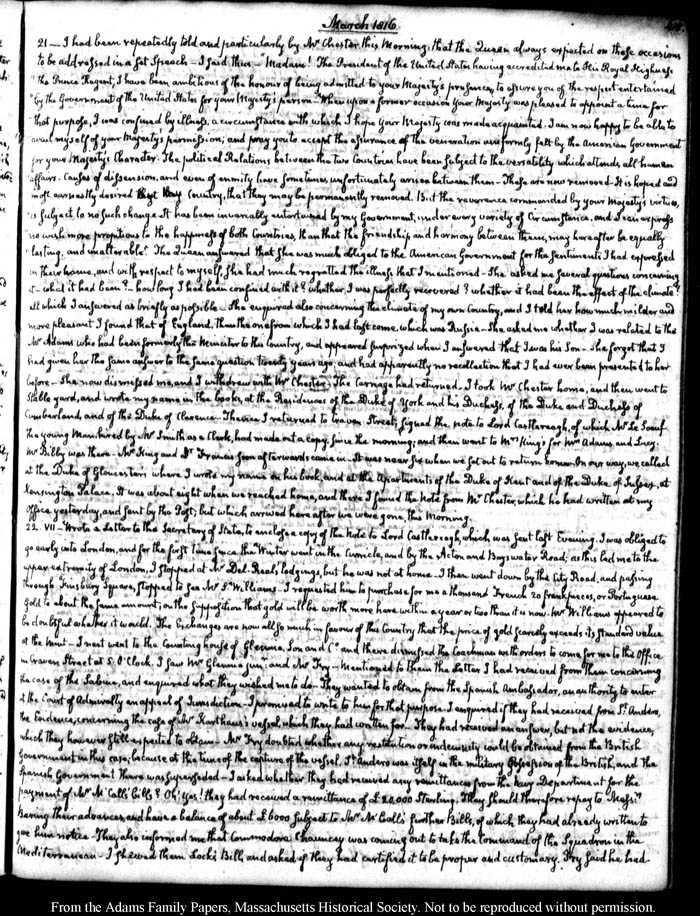 March 1816.
21 — I had been repeatedly told and particularly by Mr Chester this Morning, that the Queen always expected on these occasions
to be addressed in a set Speech — I said then — "Madam! The President of the United States having accredited me to His Royal Highness
"the Prince Regent, I have been ambitious of the honour of being admitted to your Majesty's presence, to assure you of the respect entertained
"by the Government of the United States for your Majesty's person — When upon a former occasion Your Majesty was pleased to appoint a time for
that purpose, I was confined by illness, a circumstance with which I hope Your Majesty was made acquainted. I am now happy to be able to
avail myself of your Majesty's permission; and pray you to accept the assurance of the veneration uniformly felt by the American Government
for your Majesty's Character. The political Relations between the two Countries have been subject to the versatility which attends all human
affairs. Causes of dissension, and even of enmity have sometimes unfortunately arisen between them — These are now removed — It is hoped and
most earnestly desired by my Country, that they may be permanently removed. But the reverence commanded by your Majesty's virtues,
"is subject to no such change. It has been invariably entertained by my Government, under every variety of Circumstance, and I can express
"no wish more propitious to the happiness of both Countries, than that the friendship and harmony between them, may hereafter be equally
"lasting, and unalterable." The Queen answered that she was much obliged to the American Government for the sentiments I had expressed
in their name, and with respect to myself, She had much regretted the illness that I mentioned — She asked me several questions concerning
it — what it had been? — how long I had been confined with it? whether I was perfectly recovered? whether it had been the effect of the climate?
all which I answered as briefly as possible — She enquired also concerning the climate of my own Country, and I told her how much milder and
more pleasant I found that of England, than the one from which I had last come, which was Russia — She asked me whether I was related to the
Mr Adams who had been formerly the Minister to this Country, and appeared surprized when I answered that I was his Son — She forgot that I
had given her the same answer to the same question twenty years ago, and had apparently no recollection that I had ever been presented to her
before — She now dismissed me, and I withdrew with Mr Chester; The Carriage had returned. I took Mr Chester home, and then went to
Stable yard, and wrote my name in the books, at the Residences of the Duke of York and his Duchess, of the Duke and Duchess of
Cumberland, and of the Duke of Clarence — Thence I returned to Craven Street, signed the note to Lord Castlereagh, of which
the young Man hired by Mr Smith as a Clerk, had made out a copy, since the morning; and then went to Mrs King's for Mrs Adams and Lucy.
Mr Billy was there — Mr King and Dr Francis soon afterwards came in. It was near six when we set out to return home. On our way, we called
at the Duke of Gloucester's where I wrote my name on his book, and at the Apartments of the Duke of Kent and of the Duke of Sussex, at
Kensington Palace. It was about eight when we reached home, and there I found the Note from Mr Chester, which he had written at my
Office yesterday, and sent by the Post; but which arrived here after we were gone, this Morning.
22. VII — Wrote a Letter to the Secretary of State, to enclose a copy of the Note to Lord Castlereagh, which was sent last Evening. I was obliged to
go early into London, and for the first time since the Winter went in the Curricle, and by the Acton and Bayswater Road; as this led me to the
upper extremity of London, I stopped at Mr Del Real's lodgings, but he was not at home. I then went down by the City Road, and passing
through Finsbury Square, stopped to see Mr S. Williams — I requested him to purchase for me a thousand French 20 frank pieces, or Portuguese
Gold to about the same amount, on the supposition that gold will be worth more here within a year or two than it is now. Mr Williams appeared to
be doubtful whether it would. The Exchanges are now all so much in favour of this Country that the price of gold scarcely exceeds its standard value
at the Mint — I next went to the Counting house of Glennie, Son and Co and there dismissed the Coachman with orders to come for me to the Office
in Craven Street at 5. O'Clock. I saw Mr Glennie junr and Mr Fry — Mentioned to them the Letter I had received from them concerning
the case of the Sabine, and enquired what they wished me to do — They wanted to obtain from the Spanish Ambassador, an authority to enter
at the Court of Admiralty an appeal of Jurisdiction — I promised to write to him for that purpose. I enquired if they had received from St Andero,
the Evidence, concerning the case of Mr Kurthaus's vessel, which they had written for — They had received an answer, but not the evidence,
which they however still expected to obtain — Mr Fry doubted whether any restitution or indemnity could be obtained from the British
Government in this case; because at the time of the capture of the vessel, St Andero was itself in the military possession of the British, and the
Spanish Government there was superseded — I asked whether they had received any remittances from the Navy Department for the
payment of Mr McCall's bills? Oh! Yes! they had received a remittance of £ 20,000 Sterling. They should therefore repay to Messrs
Baring their advances, and have a balance of about £ 6000 subject to Mr McCall's further Bills, of which they had already written to
give him notice — They also informed me that Commodore Chauncey was coming out to take the Command of the Squadron in the
Mediterranean — I shewed them Lock's Bill, and asked if they had certified it to be proper and customary. Fry said he had
From the Adams Family Papers, Massachusetts Historical Society. Not to be reproduced without permission.